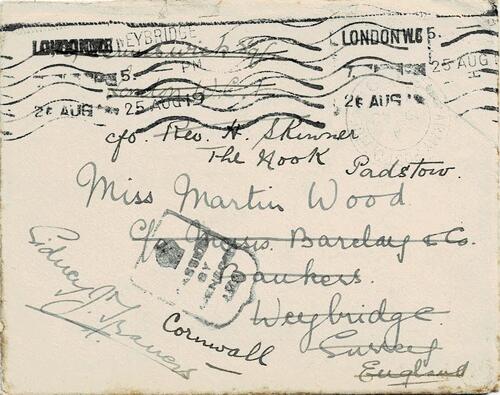 LONDON W.C. WEYBRIDGE LONDON W.C 5.
PM
26 AUG 25 AUG 19 26 AUG 25 AUG
c/o Rev. H. Skinner
The Nook Padstow.
Miss Martin Wood
c/o Messrs. Barclay & Co.
Bankers.
PASSED
BY
CENSOR
Weybridge.
Cornwall
Surrey
England
Sidney J.